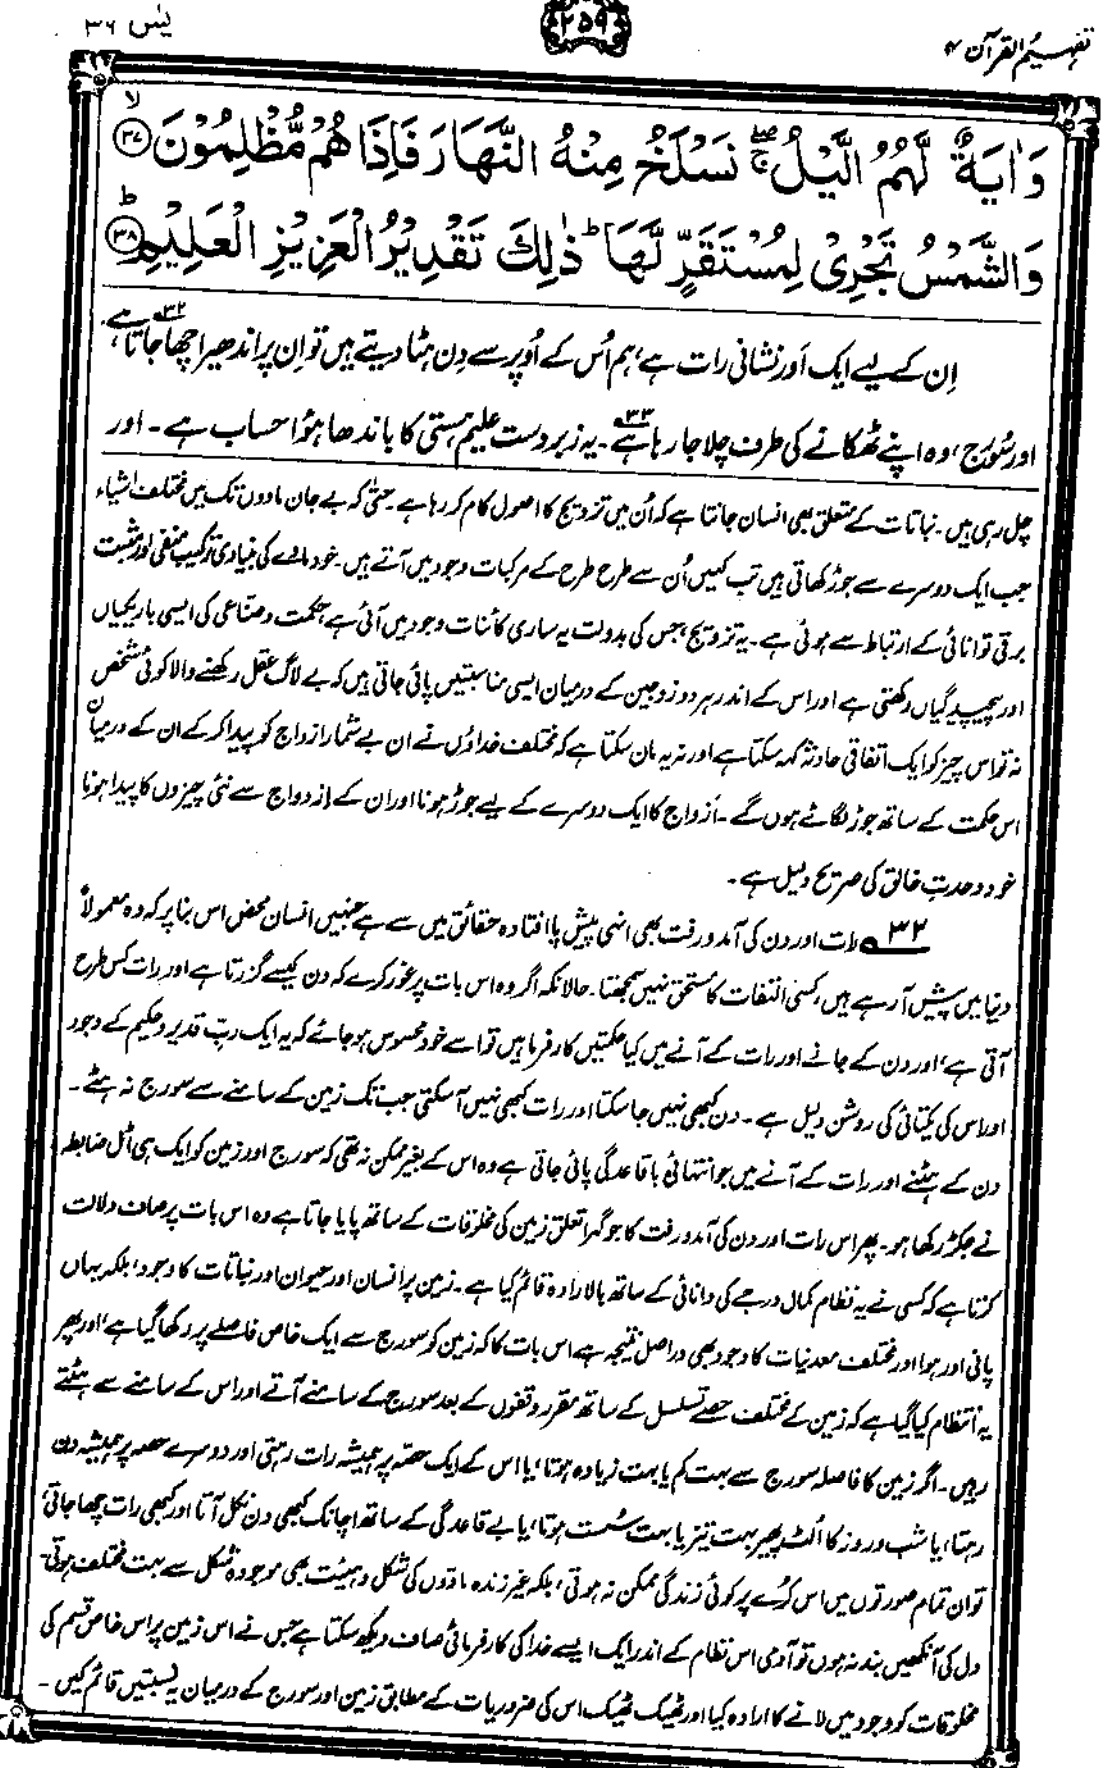 تفہیم القرآن ۴
۲۵۹
یٰس ۳۶
وَاٰيَةٌ لَّهُمُ الَّيْلُ ۖۚ نَسْلَخُ مِنْهُ النَّهَارَ فَاِذَا هُمْ مُّظْلِمُوْنَ ﴿۳۷﴾ۙ
وَالشَّمْسُ تَجْرِیْ لِمُسْتَقَرٍّ لَّهَا ؕ ذٰلِكَ تَقْدِيْرُ الْعَزِيْزِ الْعَلِيْمِ ﴿۳۸﴾ؕ
اِن کے لیے ایک اَور نشانی رات ہے، ہم اُس کے اُوپر سے دِن ہٹا دیتے ہیں تو اِن پر اندھیرا چھا جاتا ۳۲ہے،
اور سُورج، وہ اپنے ٹھکانے کی طرف چلا جا رہا ہے۳۳۔ یہ زبردست علیم ہستی کا باندھا ہوُا حساب ہے۔ اور
چل رہی ہیں۔ نباتات کے متعلق بھی انسان جانتا ہے کہ اُن میں تزویج کا اصول کام کر رہا ہے۔ حتیٰ کہ بے جان مادوں تک میں مختلف اشیاء
جب ایک دوسرے سے جوڑ کھاتی ہیں تب کہیں اُن سے طرح طرح کے مرکبات وجود میں آتے ہیں۔ خود مادے کی بنیادی ترکیب منفی اور مثبت
برقی توانائی کے ارتباط سے ہوئی ہے۔ یہ تزویج، جس کی بدولت یہ ساری کائنات وجود میں آئی ہے، حکمت و صناعی کی ایسی باریکیاں
اور پیچیدگیاں رکھتی ہے اور اس کے اندر ہر دو زوجین کے درمیان ایسی مناسبتیں پائی جاتی ہیں کہ بے لاگ عقل رکھنے والا کوئی شخص
نہ تو اس چیز کو ایک اتفاقی حادثہ کہہ سکتا ہے اور نہ یہ مان سکتا ہے کہ مختلف خداؤں نے ان بے شمار ازواج کو پیدا کر کے ان کے درمیان
اس حکمت کے ساتھ جوڑ لگائے ہوں گے۔ ازواج کا ایک دوسرے کے لیے جوڑ ہونا اور ان کے ازدواج سے نئی چیزوں کا پیدا ہونا
خود وحدتِ خالق کی صریح دلیل ہے۔
۳۲ رات اور دن کی آمد و رفت بھی انہی پیش پا افتادہ حقائق میں سے ہے جنہیں انسان محض اس بنا پر کہ وہ معمولاً
دنیا میں پیش آ رہے ہیں، کسی التفات کا مستحق نہیں سمجھتا۔ حالانکہ اگر وہ اس بات پر غور کرے کہ دن کیسے گزرتا ہے اور رات کس طرح
آتی ہے، اور دن کے جانے اور رات کے آنے میں کیا حکمتیں کارفرما ہیں تو اسے خود محسوس ہو جائے کہ یہ ایک ربِّ قدیر و حکیم کے وجود
اور اس کی یکتائی کی روشن دلیل ہے۔ دن کبھی نہیں جا سکتا اور رات کبھی نہیں آ سکتی جب تک زمین کے سامنے سے سورج نہ ہٹے۔
دن کے ہٹنے اور رات کے آنے میں جو انتہائی باقاعدگی پائی جاتی ہے وہ اس کے بغیر ممکن نہ تھی کہ سورج اور زمین کو ایک ہی اٹل ضابطہ
نے جکڑ رکھا ہو۔ پھر اس رات اور دن کی آمد و رفت کا جو گہرا تعلق زمین کی مخلوقات کے ساتھ پایا جاتا ہے وہ اس بات پر صاف دلالت
کرتا ہے کہ کسی نے یہ نظام کمال درجے کی دانائی کے ساتھ بالارادہ قائم کیا ہے۔ زمین پر انسان اور حیوان اور نباتات کا وجود، بلکہ یہاں
پانی اور ہوا اور مختلف معدنیات کا وجود بھی دراصل نتیجہ ہے اس بات کا کہ زمین کو سورج سے ایک خاص فاصلے پر رکھا گیا ہے، اور پھر
یہ انتظام کیا گیا ہے کہ زمین کے مختلف حصے تسلسل کے ساتھ مقرر وقفوں کے بعد سورج کے سامنے آتے اور اس کے سامنے سے ہٹتے
رہیں۔ اگر زمین کا فاصلہ سورج سے بہت کم یا بہت زیادہ ہوتا، یا اس کے ایک حصہ پر ہمیشہ رات رہتی اور دوسرے حصہ پر ہمیشہ دن
رہتا، یا شب و روز کا اُلٹ پھیر بہت تیز یا بہت سُست ہوتا، یا بے قاعدگی کے ساتھ اچانک کبھی دن نکل آتا اور کبھی رات چھا جاتی،
تو ان تمام صورتوں میں اس کُرے پر کوئی زندگی ممکن نہ ہوتی، بلکہ غیر زندہ مادّوں کی شکل و ہیئت بھی موجودہ شکل سے بہت مختلف ہوتی۔
دل کی آنکھیں بند نہ ہوں تو آدمی اس نظام کے اندر ایک ایسے خدا کی کارفرمائی صاف دیکھ سکتا ہے جس نے اس زمین پر اس خاص قسم کی
مخلوقات کو وجود میں لانے کا ارادہ کیا اور ٹھیک ٹھیک اس کی ضروریات کے مطابق زمین اور سورج کے درمیان یہ نسبتیں قائم کیں۔